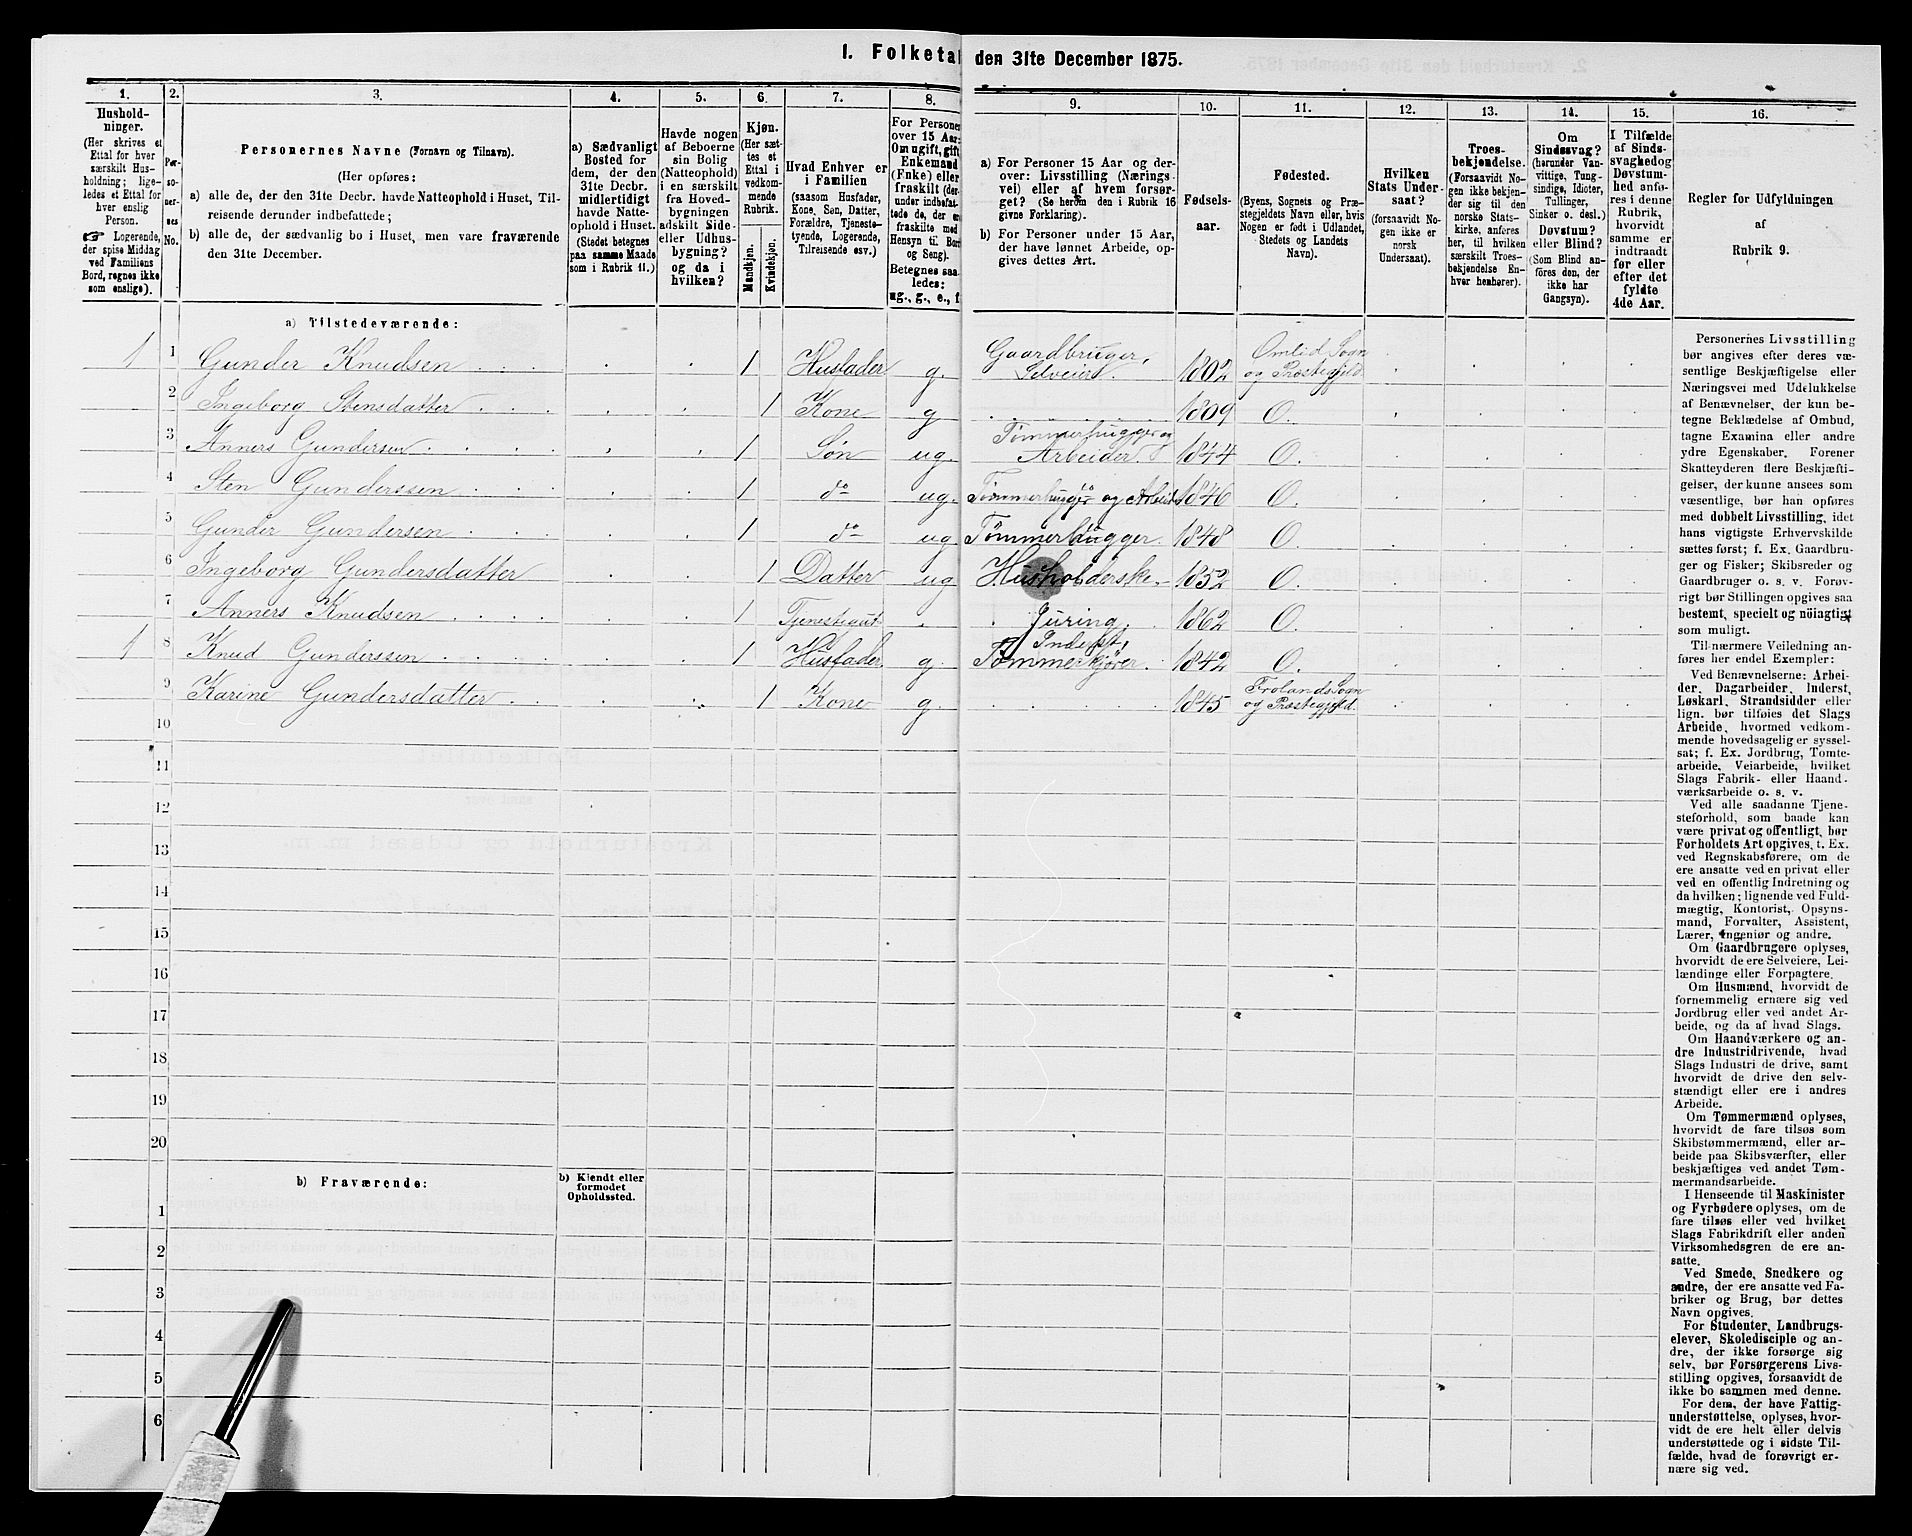 1. Folketal den 31te December 1875.
1. 2. 3. 4. 5. 6. 7. 8. 9. 10. 11. 12. 13. 14. 15. 16.
Hushold-
ninger.
(Her skrives et
Ettal for hver
særskilt Hus-
holdning; lige-
ledes et Ettal for
hver enslig
Person.
☞ Logerende,
der spise Middag
ved Familiens
Bord, regnes ikke
som enslige).
Per-
so-
ner-
nes
No.
Personernes Navne (Fornavn og Tilnavn).
(Her opføres:
a) alle de, der den 31te Decbr. havde Natteophold i Huset, Til-
reisende derunder indbefattede;
b) alle de, der sædvanlig bo i Huset, men vare fraværende
den 31te December.
a) Sædvanligt
Bosted for
dem, der den
31te Decbr.
midlertidigt
havde Natte-
ophold i Huset.
(Stedet betegnes
paa samme Maade
som i Rubrik 11.)
Havde nogen
af Beboerne
sin Bolig
(Natteophold)
i en særskilt
fra Hoved-
bygningen
adskilt Side-
eller Udhus-
bygning?
og da i
hvilken?
Kjøn.
(Her sæt-
tes et
Ettal i
vedkom-
mende
Rubrik.
Mandkjøn.
Kvindekjøn.
Hvad Enhver er
i Familien
(saasom Husfader,
Kone, Søn, Datter,
Forældre, Tjeneste-
tyende, Logerende,
Tilreisende osv.)
For Personer
over 15 Aar:
Om ugift, gift,
Enkemand
(Enke) eller
fraskilt (der-
under indbefat-
tede de, der er
fraskilte med
Hensyn til Bord
og Seng).
Betegnes saa-
ledes:
ug., g., e., f.
a) For Personer 15 Aar og der-
over: Livsstilling (Nærings-
vei) eller af hvem forsør-
get? (Se herom den i Rubrik 16
givne Forklaring).
b) For Personer under 15 Aar,
der have lønnet Arbeide, op-
gives dettes Art.
Fødsels-
aar.
Fødested.
(Byens, Sognets og Præ-
stegjeldets Navn eller, hvis
Nogen er født i Udlandet,
Stedets og Landets
Navn).
Hvilken
Stats Under-
saat?
(forsaavidt No-
gen ikke er
norsk
Undersaat).
Troes-
bekjendelse.
(Forsaavidt No-
gen ikke bekjen-
der sig til den
norske Stats-
kirke, anføres
her, til hvilken
særskilt Troes-
bekjendelse En-
hver henhører).
Om
Sindssvag?
(herunder Van-
vittige, Tung-
sindige, Idioter,
Tullinger,
Sinker o. desl.)
Døvstum?
eller Blind?
(Som Blind an-
føres den, der
ikke har
Gangsyn).
I Tilfælde
af Sinds-
svaghed og
Døvstum-
hed anfø-
res i denne
Rubrik,
hvorvidt
samme er
indtraadt
før eller
efter det
fyldte
4de Aar.
Regler for Udfyldningen
af
Rubrik 9.
a) Tilstedeværende:
1 1 Gunder Knudsen 1 Husfader g. Gaardbruger, Selveier. 1802 Omlid Sogn og Præstegjeld
2 Ingeborg Stensdatter 1 Kone g 1809 O.
3 Anners Gundersen 1 Søn ug. Tømmerhugger og Arbeider. 1844 O.
4 Sten Gunderssen 1 do ug. Tømmerhugger og Arbeid 1846 O.
5 Gunder Gundersen 1 do ug Tømmerhugger. 1848 O.
6 Ingeborg Gundersdatter 1 Datter ug Husholderske 1852 O.
7 Anners Knudsen 1 Tjenestegut 1862 O.
1 8 Knud Gunderssen 1 Husfader g. Inderst, Tømmerkjører. 1842 O.
9 Karine Gundersdatter 1 Kone g. 1845 Frolands Sogn og Præstegjeld.
10
11
12
13
14
15
16
17
18
19
20
b) Fraværende:
b) Kjendt eller
formodet
Opholdssted.
1
2
3
4
5
6
Personernes Livsstilling
bør angives efter deres væ-
sentlige Beskjæftigelse eller
Næringsvei med Udelukkelse
af Benævnelser, der kun be-
tegne Beklædelse af Ombud,
tagne Examina eller andre
ydre Egenskaber. Forener
Skatteyderen flere Beskjæfti-
gelser, der kunne ansees som
væsentlige, bør han opføres
med dobbelt Livsstilling, idet
hans vigtigste Erhvervskilde
sættes først; f. Ex. Gaardbru-
ger og Fisker; Skibsreder og
Gaardbruger o. s. v. Forøv-
rigt bør Stillingen opgives saa
bestemt, specielt og nøiagtigt
som muligt.
Til nærmere Veiledning an-
føres her endel Exempler:
Ved Benævnelserne: Arbei-
der, Dagarbeider, Inderst,
Løskarl, Strandsidder eller
lign. bør tilføies det Slags
Arbeide, hvormed vedkom-
mende hovedsagelig er syssel-
sat; f. Ex. Jordbrug, Tomte-
arbeide, Veiarbeide, hvilket
Slags Fabrik- eller Haand-
værksarbeide o. s. v.
Ved alle saadanne Tjene-
steforhold, som baade kan
være privat og offentligt, bør
Forholdets Art opgives, f. Ex.
ved Regnskabsførere, om de
ere ansatte ved en privat eller
ved en offentlig Indretning og
da hvilken; lignende ved Fuld-
mægtig, Kontorist, Opsyns-
mand, Forvalter, Assistent,
Lærer, Ingeniør og andre.
Om Gaardbrugere oplyses,
hvorvidt de ere Selveiere, Lei-
lændinge eller Forpagtere.
Om Husmænd, hvorvidt de
fornemmelig ernære sig ved
Jordbrug eller ved andet Ar-
beide, og da af hvad Slags.
Om Haandværkere og an-
dre Industridrivende, hvad
Slags Industri de drive, samt
hvorvidt de drive den selv-
stændigt eller ere i andres
Arbeide.
Om Tømmermænd oplyses,
hvorvidt de fare tilsøs som
Skibstømmermænd, eller ar-
beide paa Skibsværfter, eller
beskjæftiges ved andet Tøm-
mermandsarbeide.
I Henseende til Maskinister
og Fyrbødere oplyses, om de
fare tilsøs eller ved hvilket
Slags Fabrikdrift eller anden
Virksomhedsgren de ere an-
satte.
Ved Smede, Snedkere og
andre, der ere ansatte ved Fa-
briker og Brug, bør dettes
Navn opgives.
For Studenter, Landbrugs-
elever, Skoledisciple og an-
dre, der ikke forsørge sig
selv, bør Forsørgerens Livs-
stilling opgives, forsaavidt de
ikke bo sammen med denne.
For dem, der have Fattig-
understøttelse, oplyses, hvor-
vidt de ere helt eller delvis
understøttede og i sidste Til-
fælde, hvad de forøvrigt er-
nære sig ved.